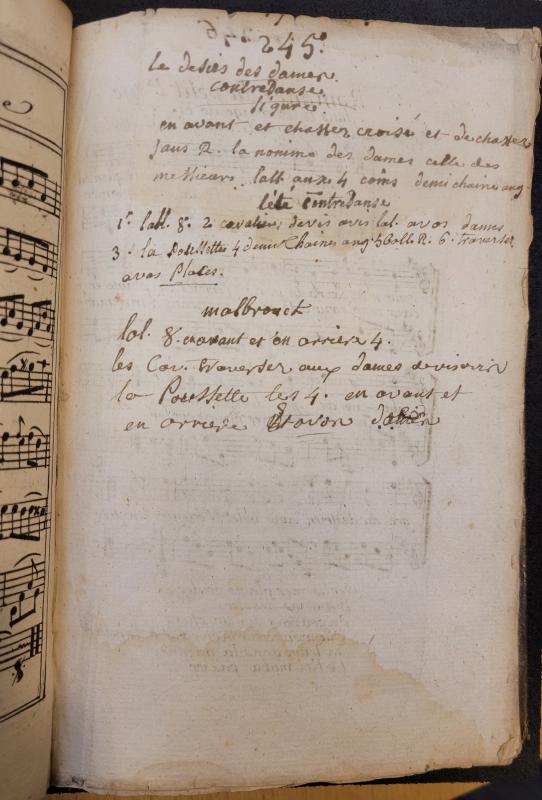 245.
le desirs des dames.
contredanse
figure
en avant et chassez croisé et dechassez
sans R. la nonime des dames celle des
messieurs. lalt aux 4 coins demi chaine ang
l'été contredanse
1r lall. 8. 2 cavaliers devis avis lal. avos dames
3. la Poussette 4 demi Chaines ang 5 Ball. R. 6. traverser
avos Places.
malbrouck
lal. 8. enavant et en arriere 4.
les Cav. traverser aux dames devisavis
la Poussette les 4. en avant et
en arriere